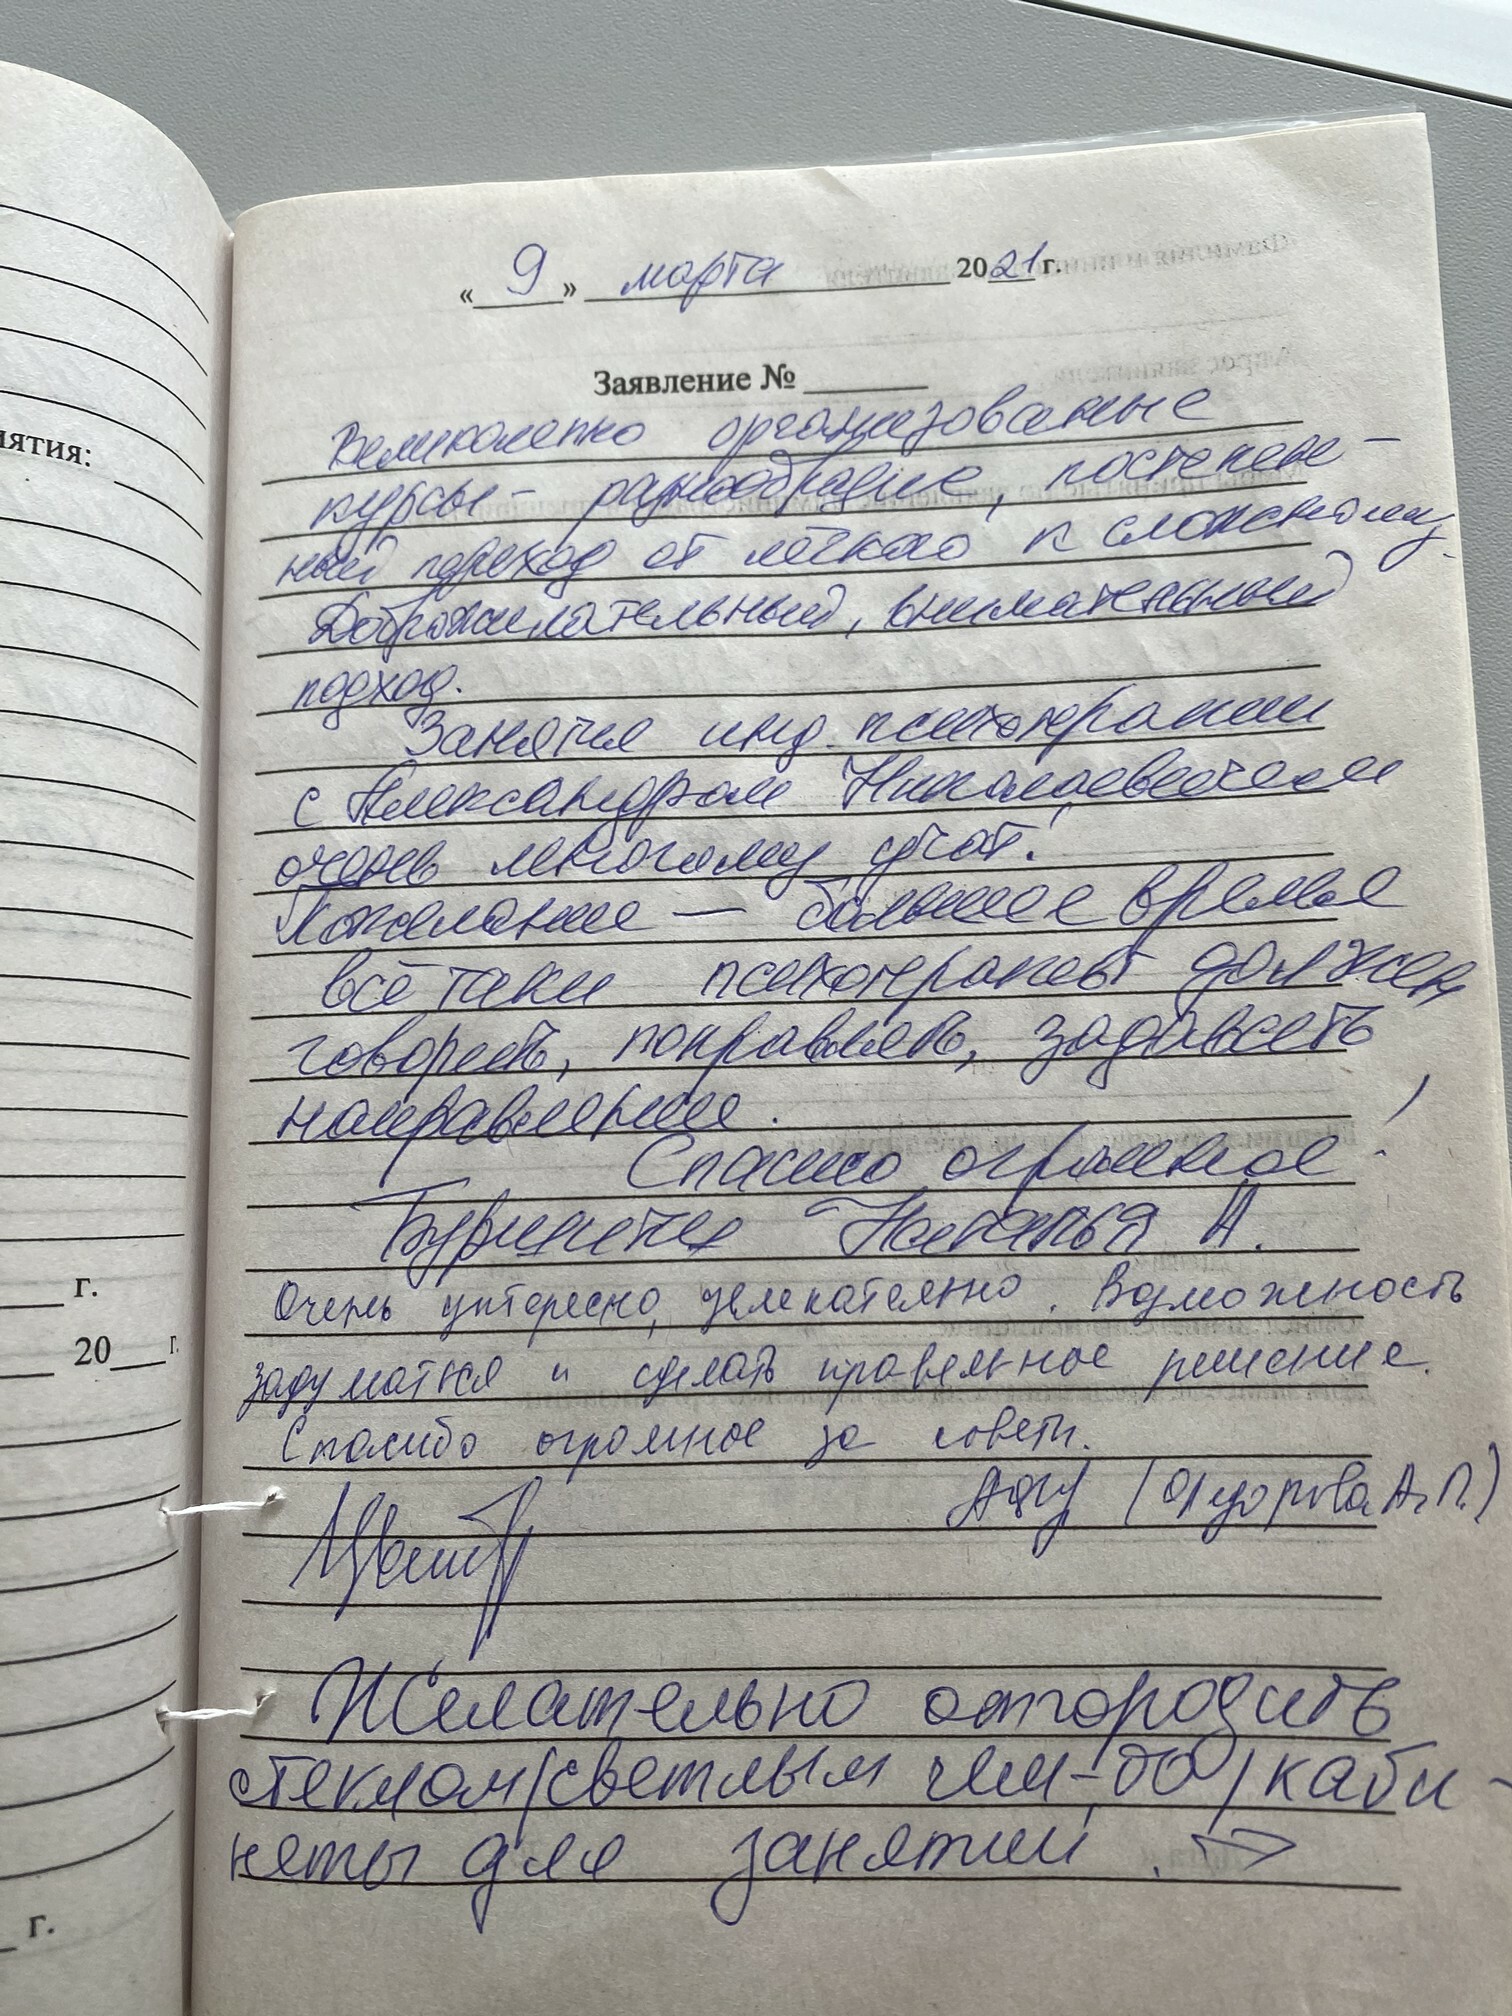 иятия:
г.
20___г.
г.
«9» марта 2021 г.
Заявление №
Великолепно организованые
курсы – разнообразие, постепен-
ный переход от лёгкого к сложному.
Доброжилательный, внимательный
подход.
Занятия инд. психотерапии
с Александром Николаевичем
очень многому учат!
Пожелание — большее время
всё таки психотерапевт должен
говорить, поправлять, задавать
направление.
Спасибо огромное!
Наталья А.
Очень интересно, увлекательно. Возможность
задуматься и сделать правельное решение.
Спасибо огромное за советы.
А.П.)
Желательно отгородить
стеклом/светлым чем-то/каби-
неты для занятий. →